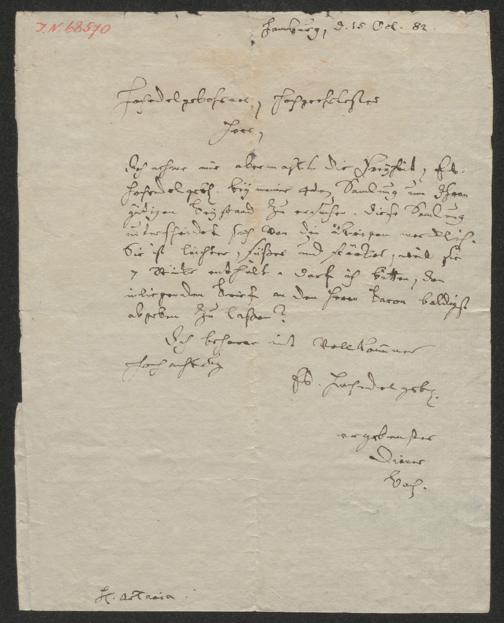 J.N. 68510
Hamburg, d. 15 Oct. 82.
Hochedelgebohrner, Hochgeehrtester
Herr,
Ich nehme mir abermahls die Freyheit, Ew.
Hochedelgeb. bey meiner 4ten Samlung um Ihren
gütigen Beystand zu ersuchen. Diese Samlung
unterscheidet sich von den übrigen merklich.
Sie ist leichter, und stärker, weil sie
7 Stücke enthält. Darf ich bitten, den
inliegenden Brief an den Herrn Baron baldigst
abgeben zu lassen?
Ich beharre mit vollkommner
Hochachtung
Ew. Hochedelgeb.
ergebenster
Diener
Bach.
H. Artaria.